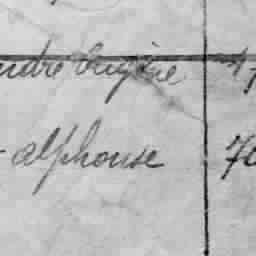 ndre Eugène 47
- alphonse 70